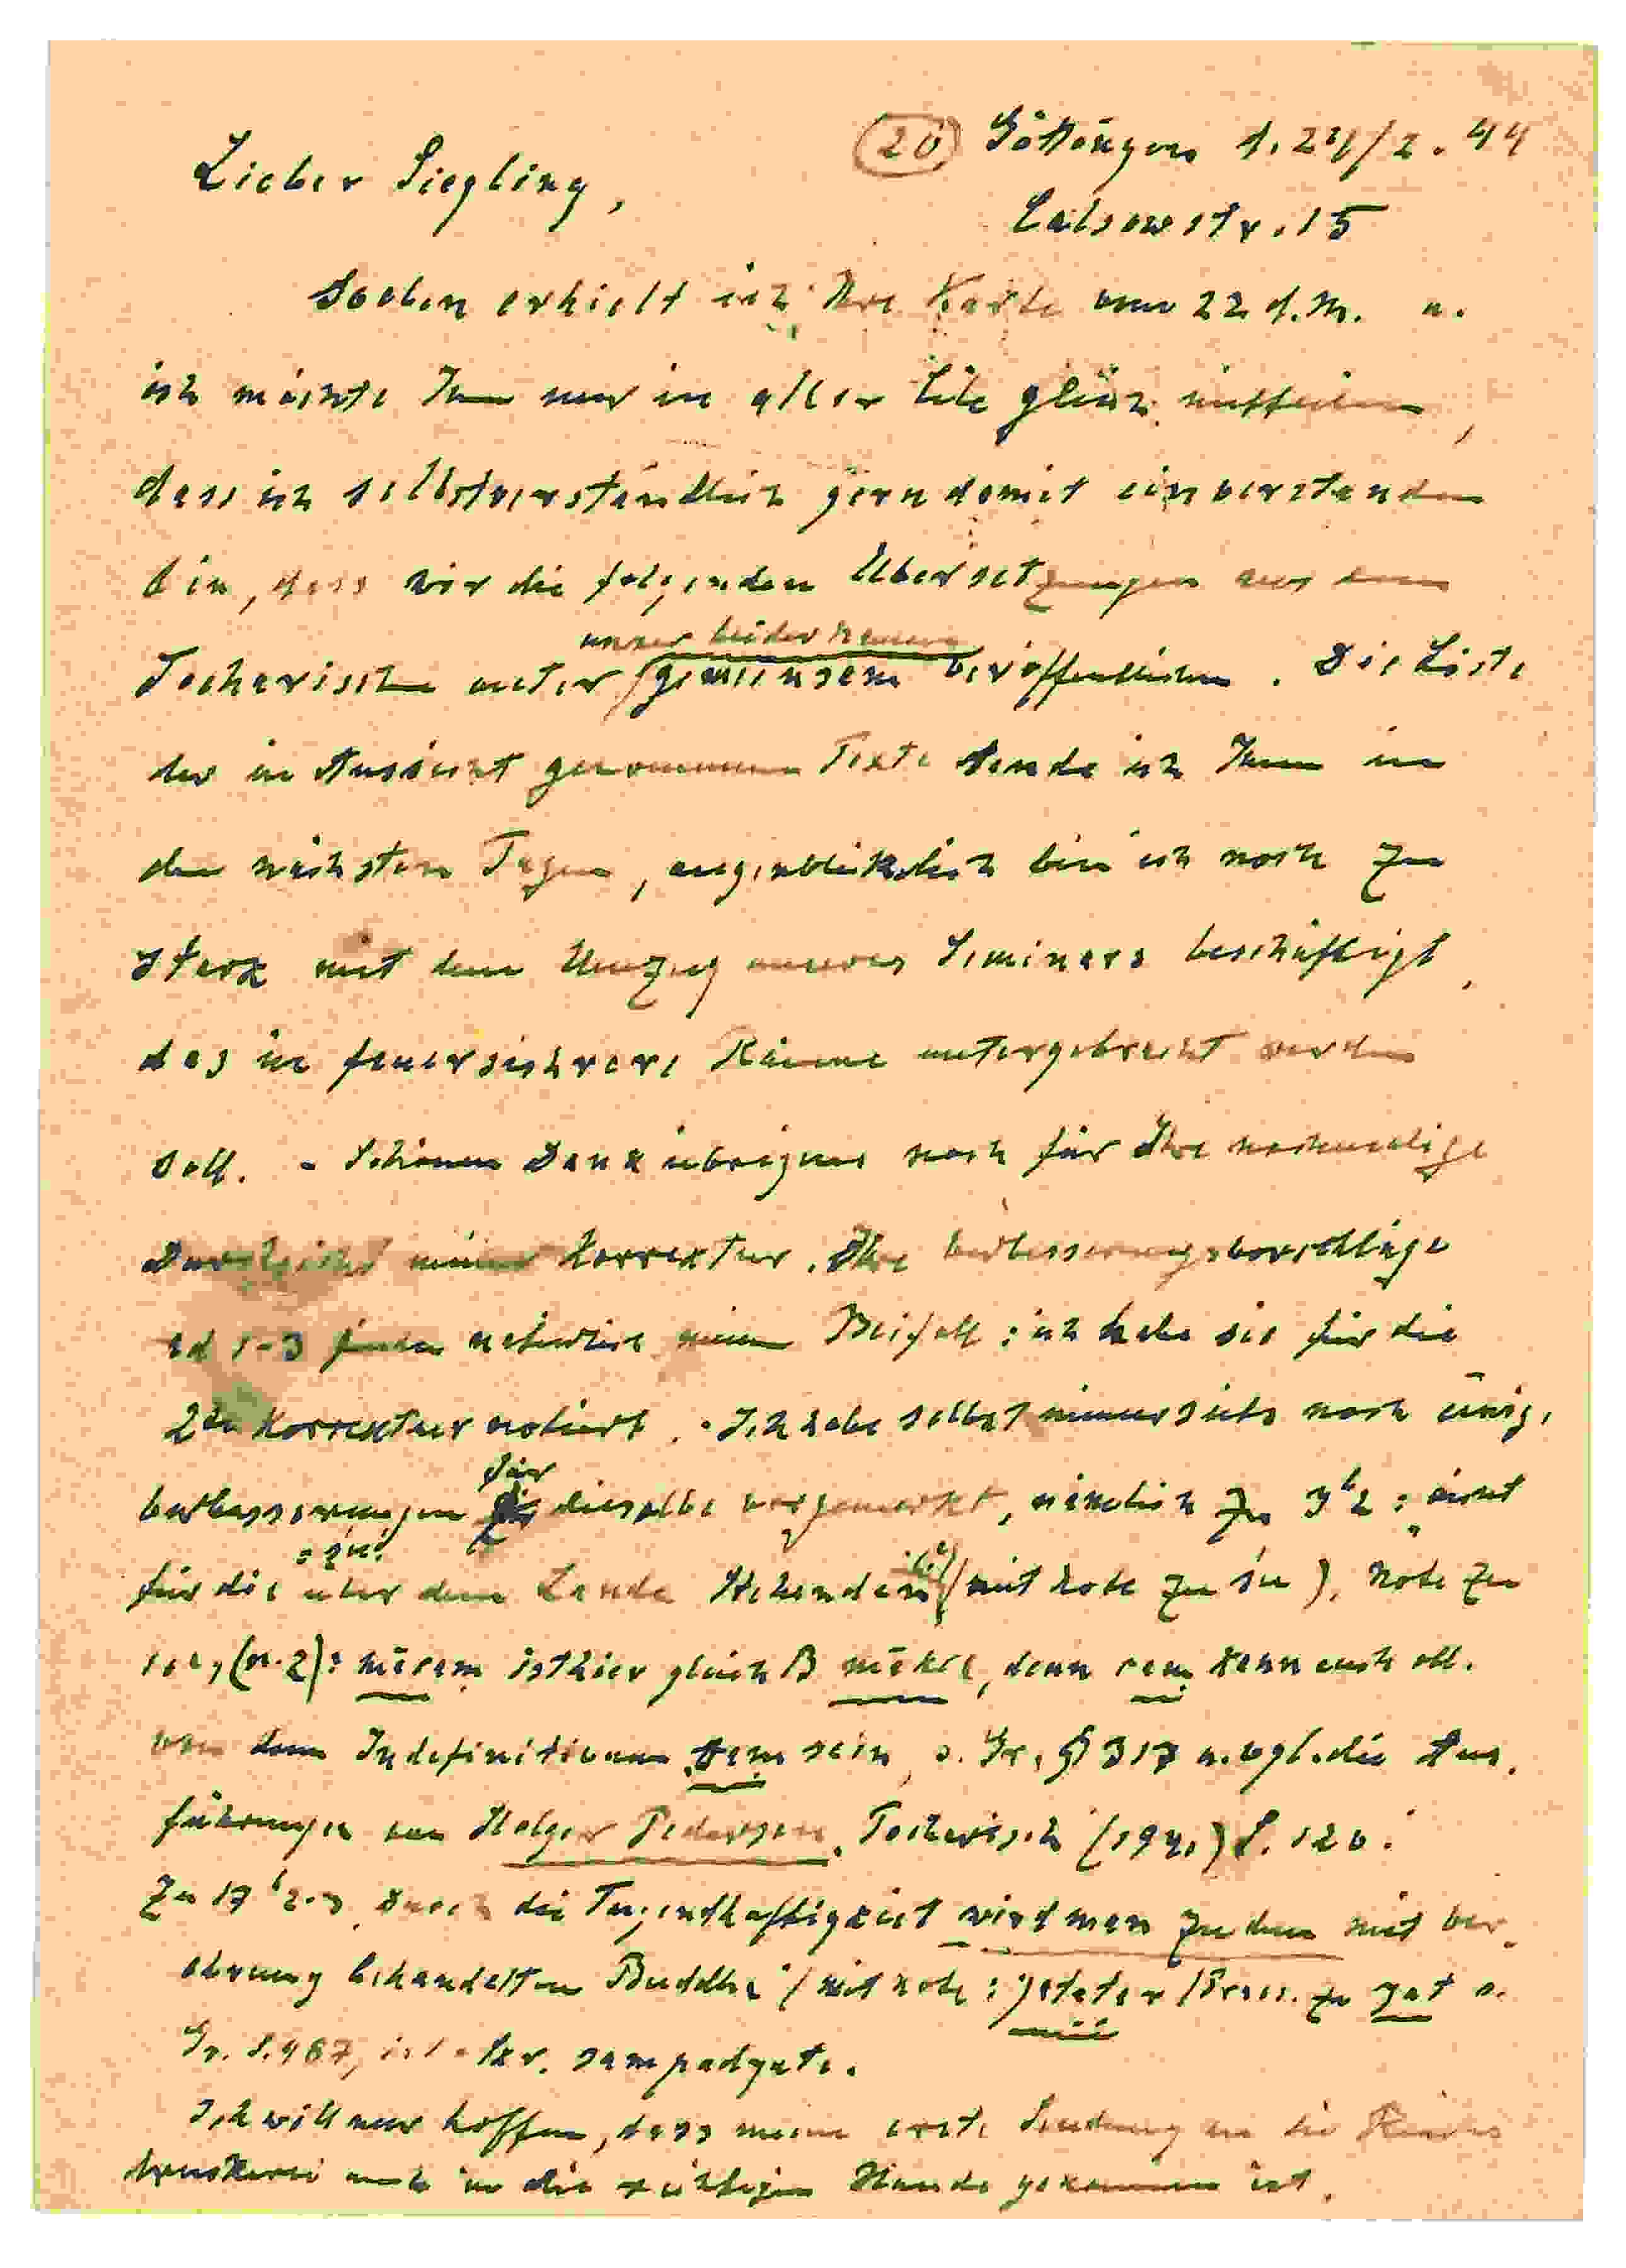 (20) Göttingen d. 24/2. 44
Lieber Siegling,
Calsowstr. 15
Soeben erhielt ich Ihre Karte vom 22 d. M. u.
ich möchte Ihnen nur in aller Eile gleich mitteilen,
dass ich selbstverständlich gern damit einverstanden
bin, dass wir die folgenden Übersetzungen aus dem
unser beider Namen
Tocharischen unter gemeinsam veröffentlichen. Die Liste
der in Aussicht genommenen Texte sende ich Ihnen in
den nächsten Tagen, augenblicklich bin ich noch zu
stark mit dem Umzug unseres Seminars beschäftigt,
das in feuersichere Räume untergebracht werden
soll. - Schönen Dank übrigens noch für Ihre nochmalige
Durchsicht meiner Korrektur. Ihre Verbesserungsvorschläge
ad 1-3 finden natürlich meinen Beifall: ich habe sie für die
2te Korrektur notiert. - Ich habe selbst meinerseits noch einige
für
Verbesserungen dieselbe vorgemerkt, nämlich zu 3b2:
für die über dem Lande Stehenden (mit Note zu), Note zu
(n. 2): ist hier gleich B, denn kann auch obl.
von dem Indefinitivum sein, s. Gr. § 317 u. vgl. die Aus-
führungen von Holger Pedersen, Tocharisch (1941) S. 120.
Zu 17b2-3 Durch die Tugendhaftigkeit wird man zu dem mit Ver-
ehrung behandelten Buddha" (mit Note: yatatär (Präs. zu yat s.
Gr. S. 467, ist = Skr. sampadyate.
Ich will nur hoffen, dass meine erste Sendung an die Reichs
druckerei auch in die richtigen Hände gekommen ist.